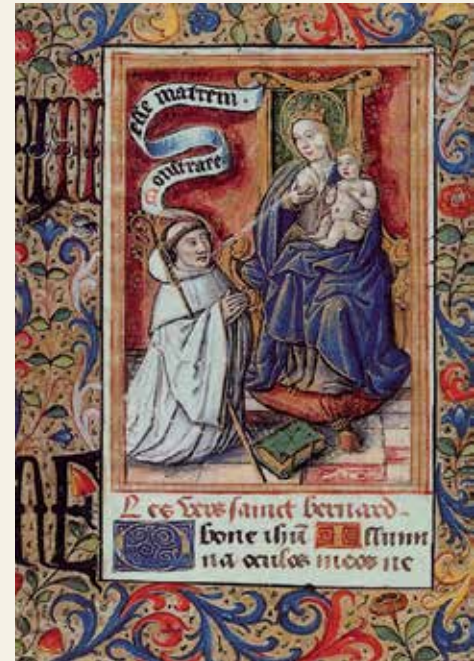 esse matrem ·
Monstrate
Les vers sainct bernard.
O bone ihū Illumi
na oculos meos ne